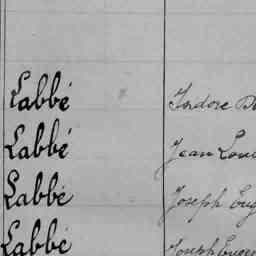 Labbé Isidore
Labbé Jean Louis
Labbé Joseph
Labbé Joseph